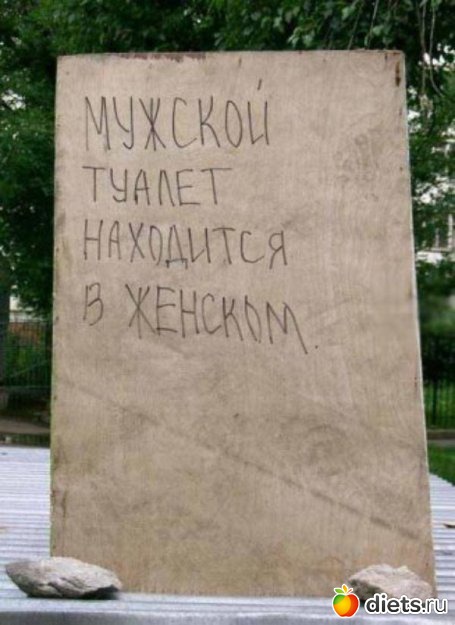 МУЖСКОЙ
ТУАЛЕТ
НАХОДИТСЯ
В ЖЕНСКОМ.
diets.ru